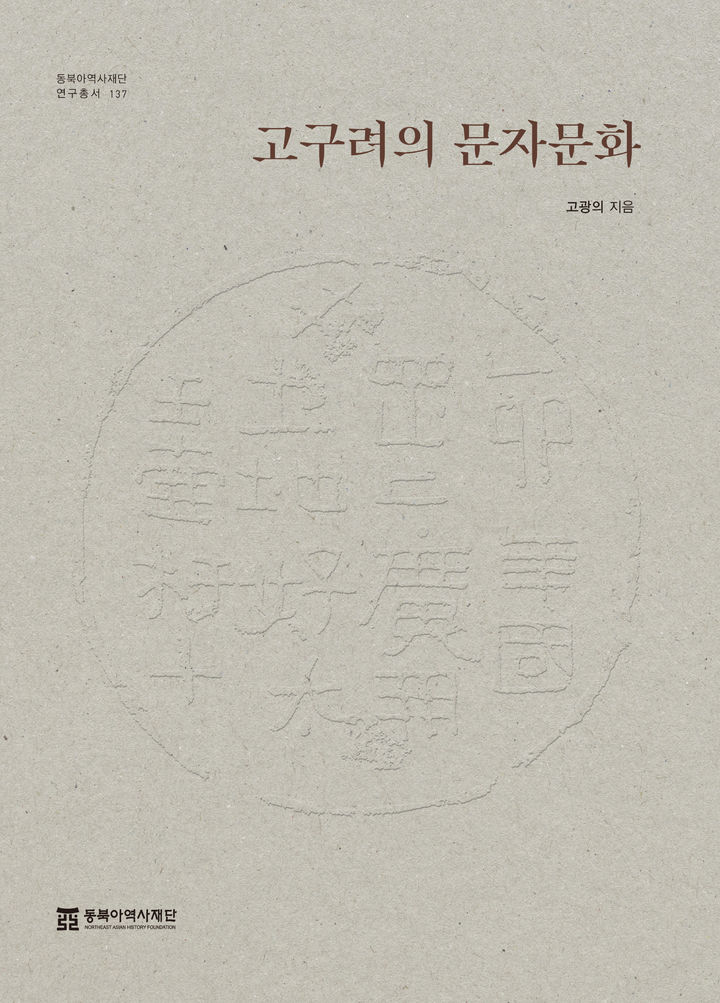 동북아역사재단
연구총서 137
고구려의 문자문화
고광의 지음
乙卯年國
罡上廣開
土地好太
王壺杅十
동북아역사재단
NORTHEAST ASIAN HISTORY FOUNDATION